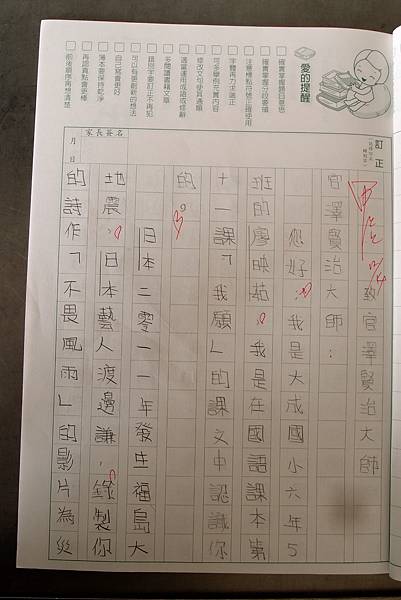 愛的提醒
□確實掌握題目意思
□確實掌握分段要確
□注意標點符號正確使用
□字體再力求端正
□可多舉例充實內容
□修改文句使其通順
□適當運用成語或修辭
□多閱讀書籍文章
□錯別字要訂正不再犯
□可以有更創新的想法
□自己寫會更好
□簿本要保持乾淨
□再認真點會更棒
□前後順序再想清楚
訂正
家長簽名
月 日
致官澤賢治大師
官澤賢治大師：
您好：我是大成國小六年5
班的廖映茹，我是在國語課本第
十一課「我願」的課文中認識你
的。
日本二零一一年發生福島大
地震，日本藝人渡邊謙，錄製你
的詩作「不畏風雨」的影片為災